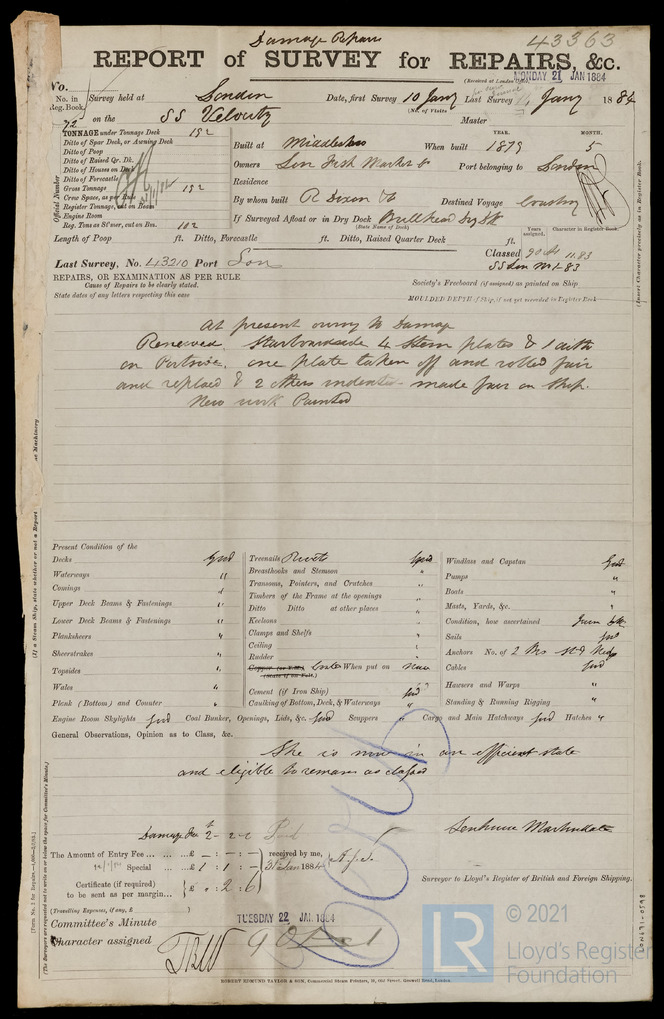 Damage Repairs
43363
REPORT of SURVEY for REPAIRS, &c.
(Received at London Office)
MONDAY 21 JAN 1884
No.
No. in Reg. Book
Survey held at London Date, first Survey 10 Jany Last Survey Jany 1884
(No. of Visits)
72 on the SS Velocity Master
TONNAGE under Tonnage Deck 192
Ditto of Spar Deck, or Awning Deck
Ditto of Poop
Ditto of Raised Qr. Dk.
Ditto of Houses on Deck
Ditto of Forecastle
Gross Tonnage 192
Crew Space, as per Rule
Register Tonnage, cut on Beam
Engine Room
Reg. Tons as St'mer, cut on Bm. 102
Official Number
YEAR. MONTH.
Built at Middlesbro When built 1879 5
Owners Lon Fish Market Co Port belonging to London
Residence
By whom built R Dixon & Co Destined Voyage Coasting
If Surveyed Afloat or in Dry Dock Bullhead Dry Dk
(State Name of Dock)
Years assigned. Character in Register Book.
Length of Poop ft. Ditto, Forecastle ft. Ditto, Raised Quarter Deck ft.
Classed 90 A1 11.83
SS Lon No 1-83
(Insert Character precisely as in Register Book.
Last Survey, No. 43210 Port Lon
REPAIRS, OR EXAMINATION AS PER RULE
Cause of Repairs to be clearly stated.
State dates of any letters respecting this case
Society's Freeboard (if assigned) as painted on Ship
MOULDED DEPTH of Ship, if not yet recorded in Register Book
At present owing to Damage
Renewed. Starboardside 4 Stem plates & 1 with
on Portside, one plate taken off and rolled fair
and replaced & 2 others indented made fair on Ship.
New work Painted
Present Condition of the
Decks Good
Waterways "
Comings "
Upper Deck Beams & Fastenings "
Lower Deck Beams & Fastenings "
Planksheers "
Sheerstrakes "
Topsides "
Wales "
Plank (Bottom) and Counter "
Treenails Rivets Good
Breasthooks and Stemson "
Transoms, Pointers, and Crutches "
Timbers of the Frame at the openings "
Ditto Ditto at other places "
Keelsons "
Clamps and Shelfs "
Ceiling "
Rudder "
When put on
Cement (if Iron Ship) good
Caulking of Bottom, Deck, & Waterways "
Windlass and Capstan Good
Pumps "
Boats "
Masts, Yards, &c. "
Condition, how ascertained from Dk
Sails good
Anchors No. of
Cables good
Hawsers and Warps "
Standing & Running Rigging "
Engine Room Skylights good Coal Bunker, Openings, Lids, &c. good Scuppers " Cargo and Main Hatchways good Hatches "
General Observations, Opinion as to Class, &c.
She is now in an efficient state
and eligible to remain as classed
Damage Fee £ 2 - 2 - 0
The Amount of Entry Fee ... £ - : - : -
Special ... £ 1 : 1 : -
received by me,
31st Jan 1884
Certificate (if required) £ 0 : 2 : 6
to be sent as per margin...
(Travelling Expenses, if any, £ )
Surveyor to Lloyd's Register of British and Foreign Shipping.
Committee's Minute TUESDAY 22 JAN 1884
Character assigned 90 A 1
ROBERT EDMUND TAYLOR & SON, Commercial Steam Printers, 19, Old Street, Goswell Road, London.
(If a Steam Ship, state whether or not a Report
on Machinery
(The Surveyors are requested not to write on or below the space for Committee's Minute.)
LON671-0598
© 2021
LR
Lloyd's Register
Foundation